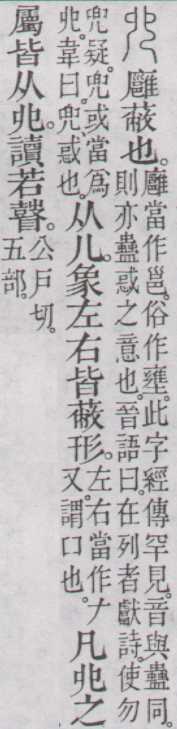 𠑹 廱蔽也。廱當作邕。俗作壅。此字經傳罕見。音與蠱同。則亦蠱惑之意也。晉語曰。在列者獻詩。使勿
兜。疑兜或當爲𠑹。韋曰。兜惑也。从儿。象左右皆蔽形。左右當作𠂇又。謂口也。凡𠑹之
屬皆从𠑹。讀若瞽。公戶切。五部。